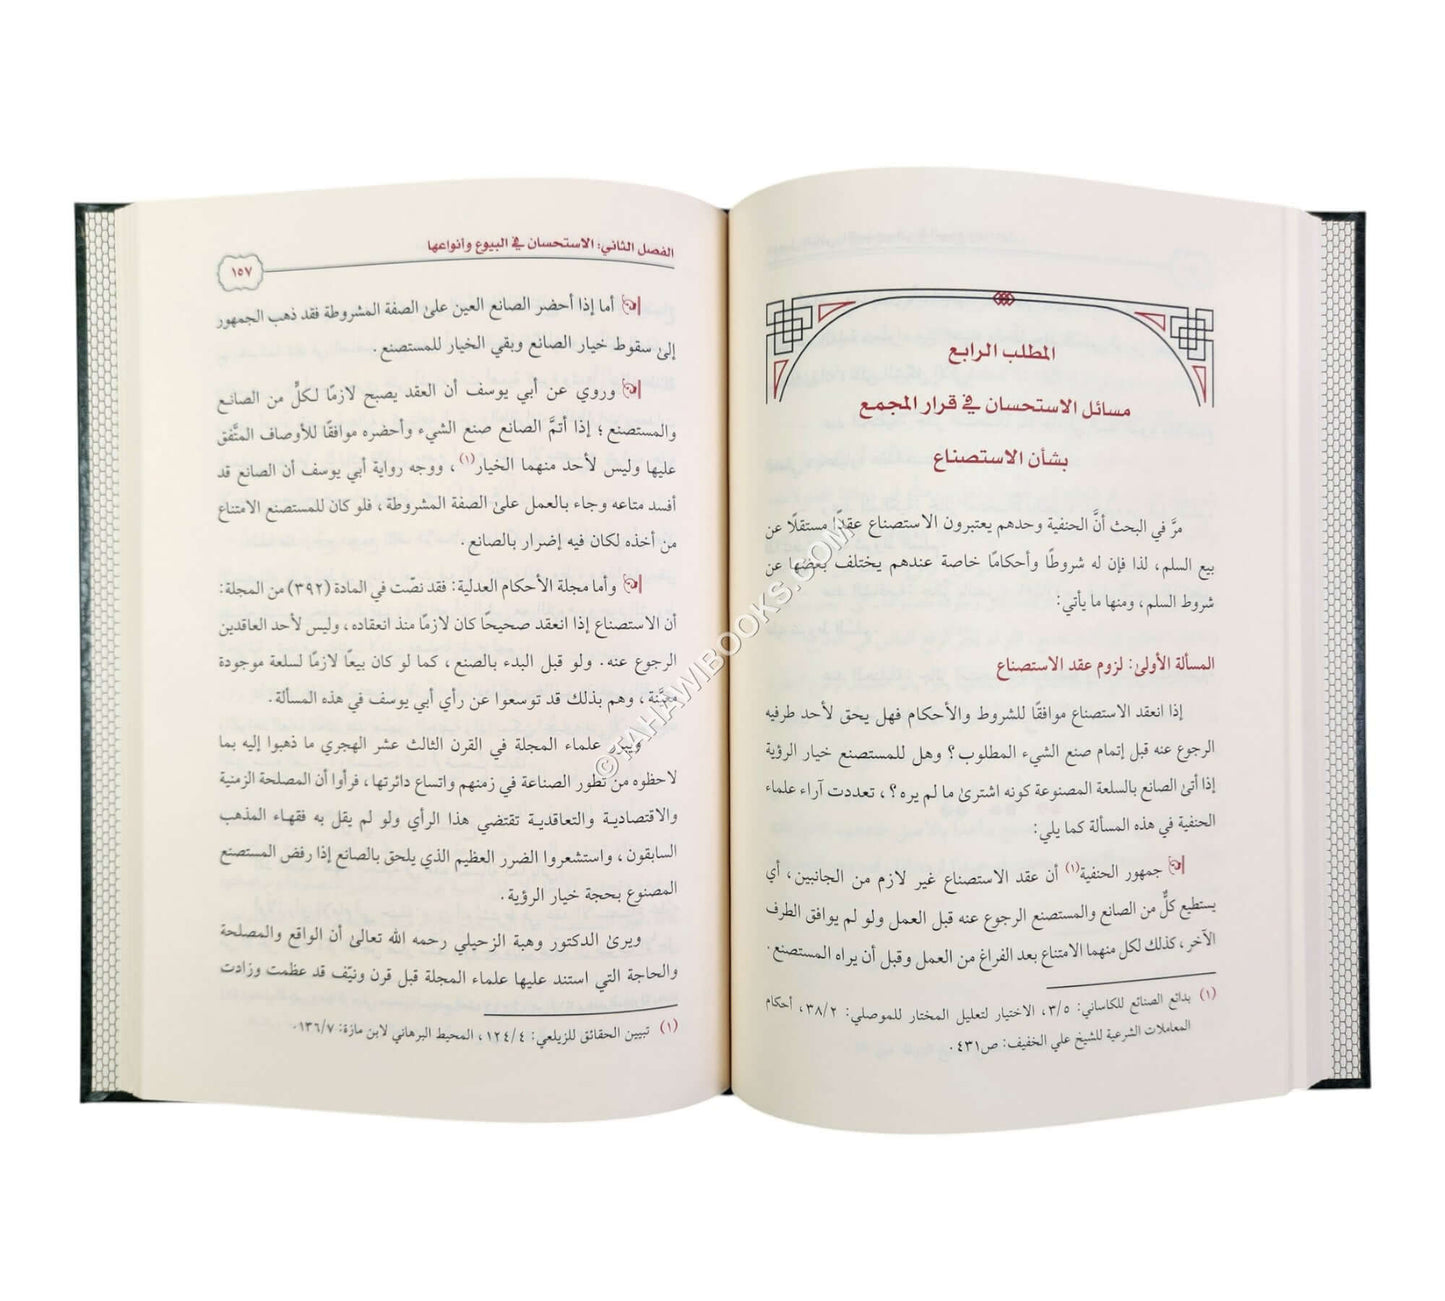 المطلب الرابع
مسائل الاستحسان في قرار المجمع
بشأن الاستصناع
مرَّ في البحث أنَّ الحنفية وحدهم يعتبرون الاستصناع عقدًا مستقلًا عن
بيع السلم، لذا فإن له شروطًا وأحكامًا خاصة عندهم يختلف بعضها عن
شروط السلم، ومنها ما يأتي:
المسألة الأولى: لزوم عقد الاستصناع
إذا انعقد الاستصناع موافقًا للشروط والأحكام فهل يحق لأحد طرفيه
الرجوع عنه قبل إتمام صنع الشيء المطلوب؟ وهل للمستصنع خيار الرؤية
إذا أتى الصانع بالسلعة المصنوعة كونه اشترى ما لم يره؟، تعددت آراء علماء
الحنفية في هذه المسألة كما يلي:
جمهور الحنفية(١) أن عقد الاستصناع غير لازم من الجانبين، أي
يستطيع كلٌّ من الصانع والمستصنع الرجوع عنه قبل العمل ولو لم يوافق الطرف
الآخر، كذلك لكل منهما الامتناع بعد الفراغ من العمل وقبل أن يراه المستصنع.
(١) بدائع الصنائع للكاساني: ٣/٥، الاختيار لتعليل المختار للموصلي: ٣٨/٢، أحكام
المعاملات الشرعية للشيخ علي الخفيف: ص٤٣١.
الفصل الثاني: الاستحسان في البيوع وأنواعها
١٥٧
أما إذا أحضر الصانع العين على الصفة المشروطة فقد ذهب الجمهور
إلى سقوط خيار الصانع وبقي الخيار للمستصنع.
وروي عن أبي يوسف أن العقد يصبح لازمًا لكلٍّ من الصانع
والمستصنع؛ إذا أتمَّ الصانع صنع الشيء وأحضره موافقًا للأوصاف المتَّفق
عليها وليس لأحد منهما الخيار(١)، ووجه رواية أبي يوسف أن الصانع قد
أفسد متاعه وجاء بالعمل على الصفة المشروطة، فلو كان للمستصنع الامتناع
من أخذه لكان فيه إضرار بالصانع.
وأما مجلة الأحكام العدلية: فقد نصّت في المادة (٣٩٢) من المجلة:
أن الاستصناع إذا انعقد صحيحًا كان لازمًا منذ انعقاده، وليس لأحد العاقدين
الرجوع عنه. ولو قبل البدء بالصنع، كما لو كان بيعًا لازمًا لسلعة موجودة
معيَّنة، وهم بذلك قد توسعوا عن رأي أبي يوسف في هذه المسألة.
ويبرر علماء المجلة في القرن الثالث عشر الهجري ما ذهبوا إليه بما
لاحظوه من تطور الصناعة في زمنهم واتساع دائرتها، فرأوا أن المصلحة الزمنية
والاقتصادية والتعاقدية تقتضي هذا الرأي ولو لم يقل به فقهاء المذهب
السابقون، واستشعروا الضرر العظيم الذي يلحق بالصانع إذا رفض المستصنع
المصنوع بحجة خيار الرؤية.
ويرى الدكتور وهبة الزحيلي رحمه الله تعالى أن الواقع والمصلحة
والحاجة التي استند عليها علماء المجلة قبل قرن ونيّف قد عظمت وزادت
(١) تبيين الحقائق للزيلعي: ١٢٤/٤، المحيط البرهاني لابن مازة: ١٣٦/٧.
©TAHAWIBOOKS.COM